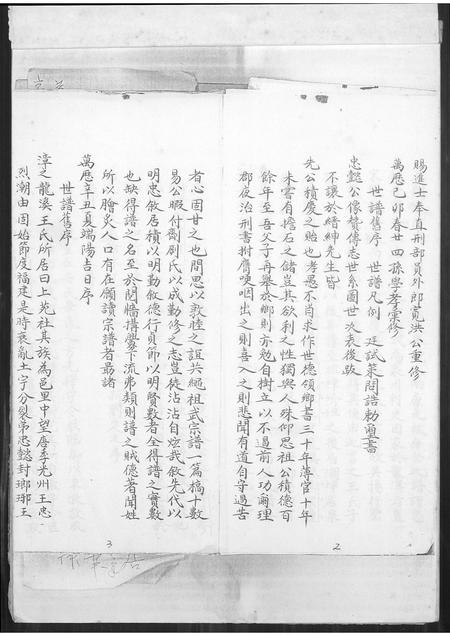 賜進士奉直刑部員外郎寬洪公重修
萬歷己卯春廿四孫學孝彙修
世譜舊序 世譜凡例 廷試策問誥勅璽書
忠懿公像贊傳志世系圖世次表後跋
不讓於縉紳先生皆
先公積慶之貽也孝愚不肖求作世德領鄉書三十年薄官十年
未嘗有擔石之儲豈其欲利之性獨與人殊仰思祖公積德百
餘年至吾父子再舉於鄉則亦勉自樹立以不過前人功爾理
郡夜治刑書拊膺哽咽出之則喜入之則悲聞有道自守過告
2
者心固甘之也間思以敦睦之誼共繩祖武宗譜一篇稿十數
易公暇付劂氏以成勤修之志豈徒沾沾自炫我敘先代以
明忠敘居積以明勤敘德行貞節以明賢數者全得譜之實數
也缺得譜之名至於鬩牆搆釁下流弗類則譜之賊德著聞姓
所以膾炙人口有在願讀宗譜者最諸
萬歷辛丑夏端陽吉日序
世譜舊序
漳之龍溪王氏所居曰上苑社其族為邑里中望唐季光州王忠
烈潮由固始節度福建是時衰亂土宇分裂弟忠懿封瑯琊王
3